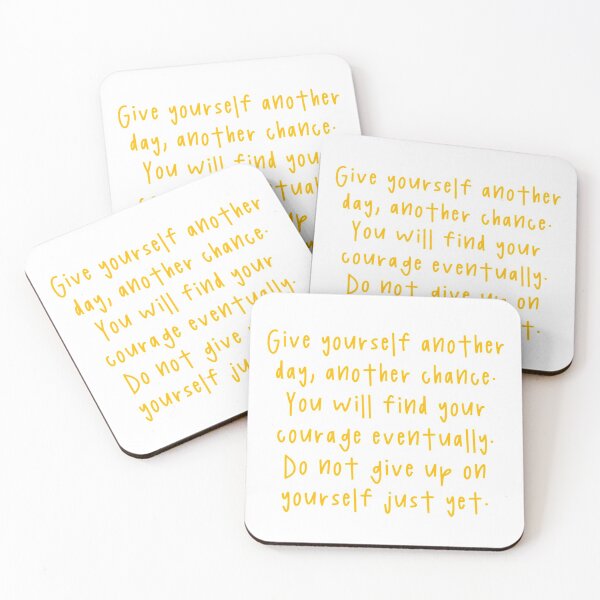 Give yourself another
day, another chance.
You will find
Give yourself another
day, another chance.
You will find your
courage eventually.
Do not give up on
Give yourself another
day, another chance.
You will find your
courage eventually.
Do not give
yourself
Give yourself another
day, another chance.
You will find your
courage eventually.
Do not give up on
yourself just yet.